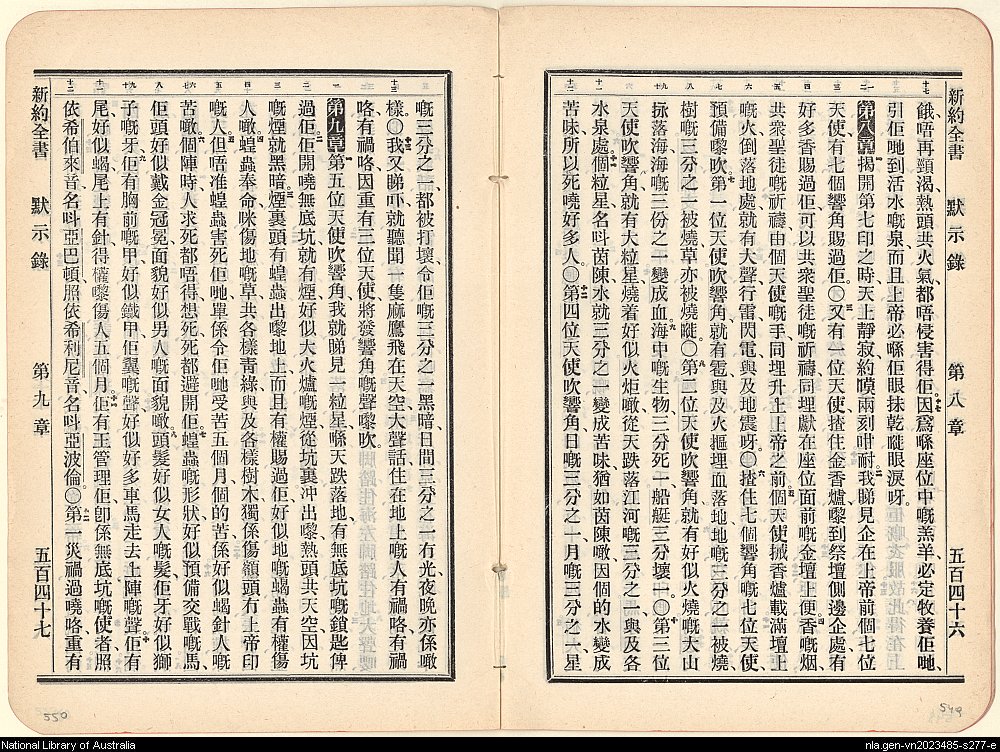 新約全書 默示錄 第八章 五百四十六
餓、唔再頸渴、熱頭共火氣都唔侵害得佢、因爲喺座位中嘅羔羊、必定牧養佢哋、
引佢哋到活水嘅泉、而且上帝必喺佢眼抹乾嘥眼淚呀。
第八章 揭開第七印之時、天上靜寂、約嘆兩刻咁耐、我睇見企在上帝前個七位
天使、有七個響角賜過佢。〇又有一位天使揸住金香爐、嚟到祭壇側邊企處、有
好多香賜過佢、可以共衆聖徒嘅祈禱、同埋獻在座位面前嘅金壇上便、香嘅烟
共衆聖徒嘅祈禱、由個天使嘅手、同埋升上上帝之前、個天使搣香爐載滿壇上
嘅火、倒落地處、就有大聲、行雷、閃電、與及地震呀。〇揸住七個響角嘅七位天使、
預備嚟吹。第一位天使吹響角、就有雹與及火摳埋血落地、地嘅三分之一被燒、
樹嘅三分之一被燒、草亦被燒嘥。〇第二位天使吹響角、就有好似火燒嘅大山
拯落海、海嘅三份之一變成血、海中嘅生物、三分死一、船艇三分壞一。〇第三位
天使吹響角、就有大粒星燒着、好似火炬噉、從天跌落江河嘅三分之一、與及各
水泉處、個粒星名呌茵陳、水就三分之一變成苦味、猶如茵陳噉、因個的水變成
苦味、所以死嘵好多人。〇第四位天使吹響角、日嘅三分之一、月嘅三分之一、星
嘅三分之一、都被打壞、令佢嘅三分之一黑暗、日間三分之一冇光、夜晚亦係噉
樣。〇我又睇吓、就聽聞一隻麻鷹、飛在天空大聲話、住在地上嘅人有禍咯、有禍
咯、有禍咯、因重有三位天使、將發響角嘅聲嚟吹。
第九章 第五位天使吹響角、我就睇見一粒星喺天跌落地、有無底坑嘅鎖匙俾
過佢、佢開嘵無底坑、就有煙好似大火爐嘅煙、從坑裏冲出嚟、熱頭共天空因坑
嘅煙就黑暗、煙裏頭有蝗蟲出嚟地上、而且有權賜過佢、好似地嘅蝎蟲有權傷
人噉、蝗蟲奉命咪傷地嘅草、共各樣青綠、與及各樣樹木、獨係傷額頭冇上帝印
嘅人、但唔准蝗蟲害死佢哋、單係令佢哋受苦五個月、個的苦係好似蝎針人嘅
苦噉。個陣時人求死都唔得、想死死都避開佢、蝗蟲嘅形狀好似預備交戰嘅馬、
佢頭好似戴金冠冕、面貌好似男人嘅面貌噉、頭髮好似女人嘅髮、佢牙好似獅
子嘅牙、佢有胸前嘅甲好似鐵甲、佢翼嘅聲好似好多車馬走去上陣嘅聲、佢有
尾好似蝎、尾上有針、得權嚟傷人五個月、佢有王管理佢、卽係無底坑嘅使者、照
依希伯來音名呌亞巴頓、照依希利尼音名呌亞波倫。〇第一災禍過嘵咯、重有
新約全書 默示錄 第九章 五百四十七
550
549
National Library of Australia
nla.gen-vn2023485-s277-e